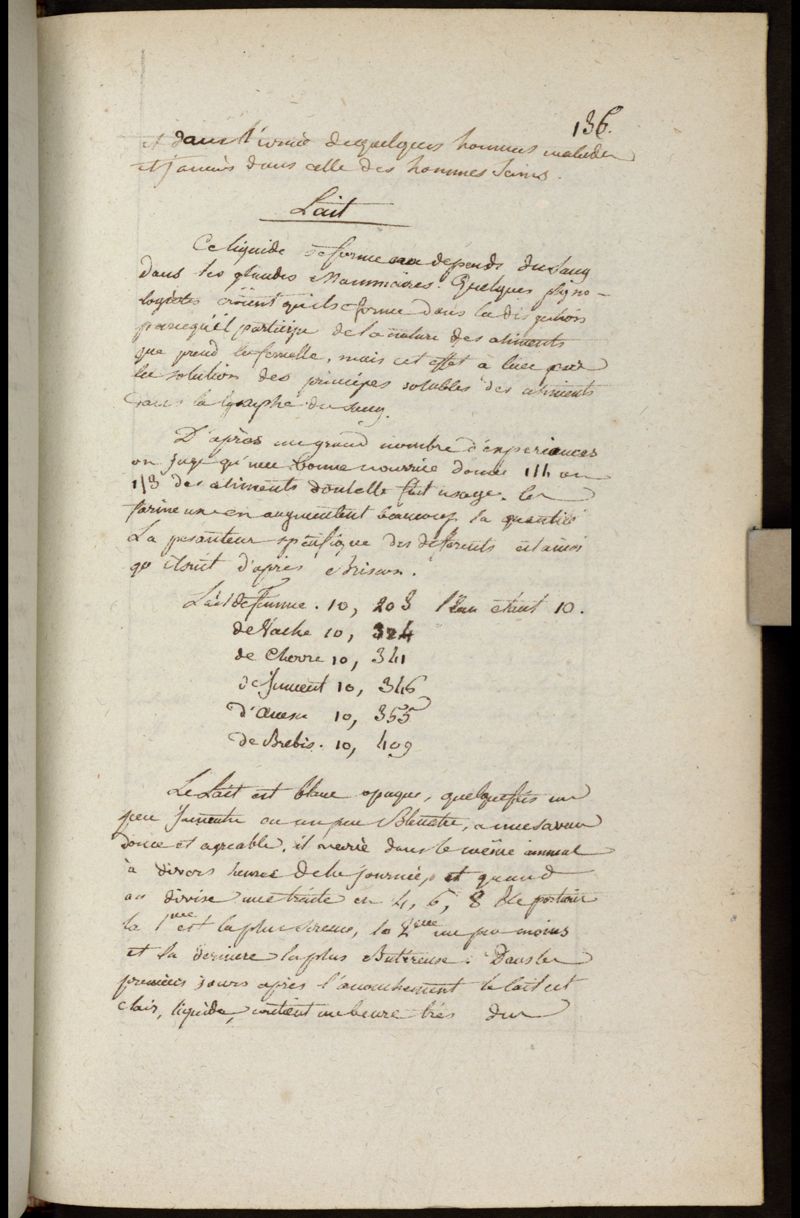 136.
et dans l'urine de quelques hommes malades
et jamais dans celle des hommes sains.
Lait
Ce liquide se forme aux dépends du sang
dans les glandes Mammaires. Quelques physio-
logistes croient qu'il se forme dans la digestion
parcequ'il participe de la nature des aliments
que prend la femelle, mais cet effet a lieu par
la solution des principes solubles des aliments
dans la lymphe du sang.
D'après un grand nombre d'experiences
on juge qu'une bonne nourrice donne 1/4 ou
1/3 des aliments dont elle fait usage. les
farineux en augmentent beaucoup la quantité
La pesanteur spécifique des differents est ainsi
qu'il suit d'après Brisson.
Lait de Femme. 10, 203 l'Eau étant 10.
de Vache 10, 324
de Chevre 10, 341
de Jument 10, 346
d'anesse 10, 355
de Brebis. 10, 409
Le Lait est blanc opaque, quelquefois un
peu jaunatre ou un peu Bleuatre, a une saveur
douce et agreable. il varie dans le même animal
à divers heures de la journée, et quand
on divise une traite en 4, 6, 8 portions
la 1ere est la plus sereuse, la 2eme un peu moins
et la derniere la plus Butireuse. Dans les
premiers jours après l'accouchement le lait est
clair, liquide, contient un beurre très dur